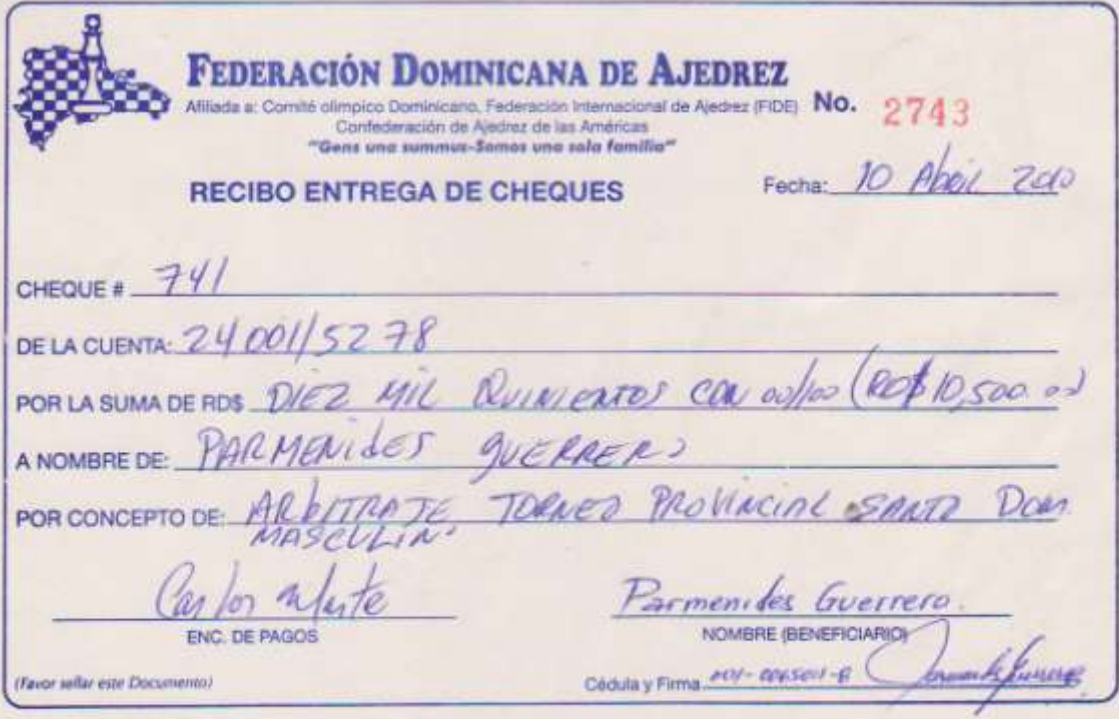 FEDERACIÓN DOMINICANA DE AJEDREZ
Afiliada a: Comité olímpico Dominicano, Federación Internacional de Ajedrez (FIDE) No. 2743
Confederación de Ajedrez de las Américas
"Gens una summus-Somos una sola familia"
RECIBO ENTREGA DE CHEQUES Fecha: 10 Abril 2010
CHEQUE # 741
DE LA CUENTA: 24001/5278
POR LA SUMA DE RD$ DIEZ MIL QUINIENTOS CON 00/100 (RD$ 10,500.00)
A NOMBRE DE: PARMENIdES GUERRERO
POR CONCEPTO DE: ARbITRAJE TORNEO PROVINCIAL SANTO DOM.
MASCULINO
Carlos Parmenides Guerrero.
ENC. DE PAGOS NOMBRE (BENEFICIARIO)
(Favor sellar este Documento) Cédula y Firma